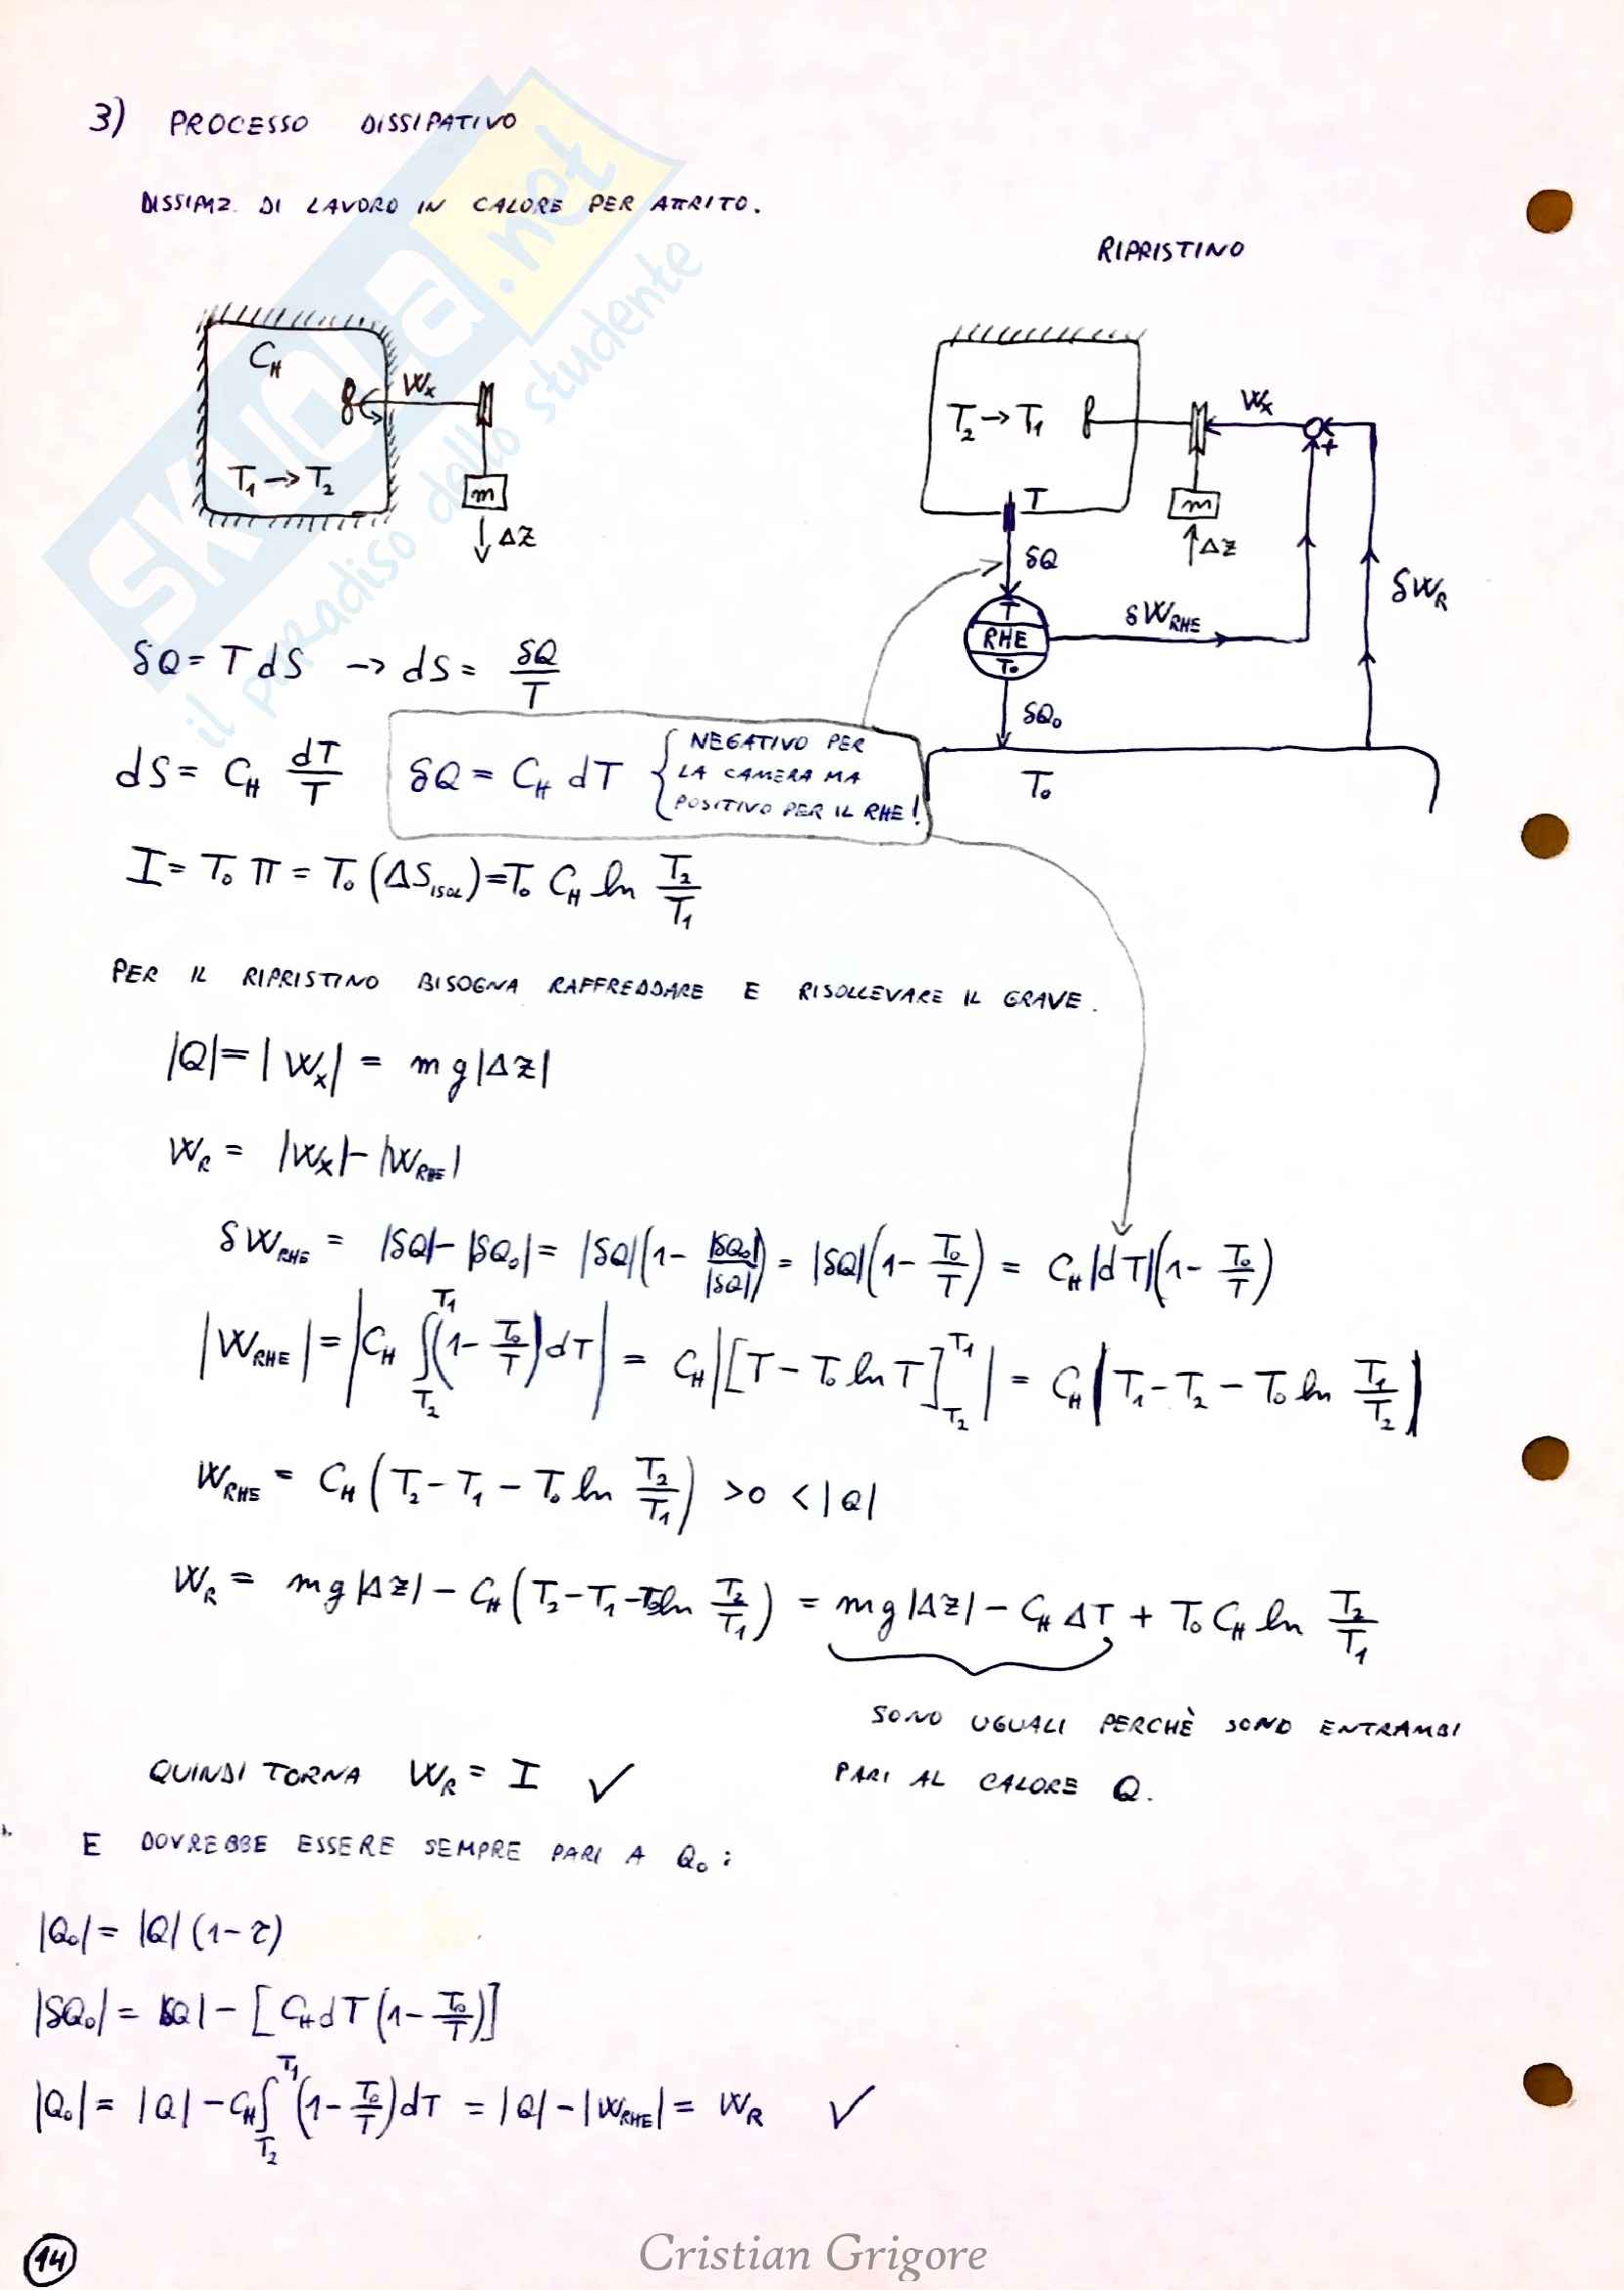 3) PROCESSO DISSIPATIVO
DISSIPAZ. DI LAVORO IN CALORE PER ATTRITO.
RIPRISTINO
SKUOLA.net
il paradiso dello studente
C_H
W_x
T₁ → T₂
m
ΔZ
T₂ → T₁
W_x
+
m
ΔZ
T
δQ
T
RHE
T₀
δW_RHE
δW_R
δQ₀
T₀
δQ = T dS → dS = δQ/T
dS = C_H dT/T
δQ = C_H dT { NEGATIVO PER
LA CAMERA MA
POSITIVO PER IL RHE!
I = T₀ π = T₀ (ΔS_ISOL) = T₀ C_H ln T₂/T₁
PER IL RIPRISTINO BISOGNA RAFFREDDARE E RISOLLEVARE IL GRAVE.
|Q| = |W_x| = m g |ΔZ|
W_R = |W_x| - |W_RHE|
δW_RHE = |δQ| - |δQ₀| = |δQ| (1 - |δQ₀|/|δQ|) = |δQ| (1 - T₀/T) = C_H |dT| (1 - T₀/T)
|W_RHE| = |C_H ∫_T₂^T₁ (1 - T₀/T) dT| = C_H |[T - T₀ ln T]_T₂^T₁| = C_H |T₁ - T₂ - T₀ ln T₁/T₂|
W_RHE = C_H (T₂ - T₁ - T₀ ln T₂/T₁) >0 <|Q|
W_R = m g |ΔZ| - C_H (T₂ - T₁ - T₀ ln T₂/T₁) = m g |ΔZ| - C_H ΔT + T₀ C_H ln T₂/T₁
SONO UGUALI PERCHÈ SONO ENTRAMBI
PARI AL CALORE Q.
QUINDI TORNA W_R = I ✓
E DOVREBBE ESSERE SEMPRE PARI A Q₀:
|Q₀| = |Q| (1 - τ)
|δQ₀| = |δQ| - [C_H dT (1 - T₀/T)]
|Q₀| = |Q| - C_H ∫_T₂^T₁ (1 - T₀/T) dT = |Q| - |W_RHE| = W_R ✓
14
Cristian Grigore